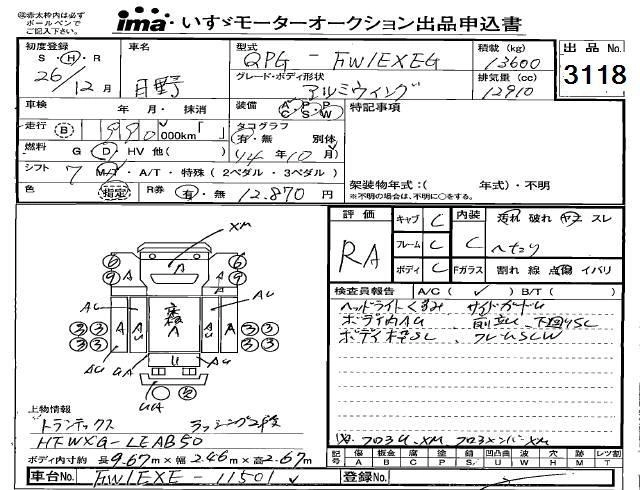 ㊟赤太枠内は必ず
ボールペンで
ご記入下さい。
ima いすゞモーターオークション出品申込書
初度登録 S・H・R 26/12月
車名 日野
型式 QPG - FW1EXEG
積載 (kg) 13600
出品No. 3118
グレード・ボディ形状 アルミウィング
排気量 (cc) 12910
車検 年・月・抹消
装備 A P P C S W
特記事項
走行 B 990,000km「 」
タコグラフ 有・無 別体
燃料 G D・HV 他( )
14年10月)
シフト 7 M/T・A/T・特殊(2ペダル・3ペダル)
架装物年式:( 年式)・不明
※不明の場合は、不明に○をする。
色 指定 R券 有・無 12,870円
評価 RA
キャブ C
内装 C
汚れ 破れ ヤケ スレ
フレーム C
へたり
ボディ C
Fガラス 割れ 線 点傷 イバリ
検査員報告 A/C( ✓ ) B/T( )
ヘッドライトくすみ サイドガードU
ボデー内AU 前立U 下回りSC
ボディ枠SC フレームSCW
XM
6 6
9 A A 9
AU A AU
3 3 A A A A 3 3
AU UA U AU
UA 2
上物情報
トランテックス ラッシング2段
HFWXG-LEAB50
ボディ内寸約 長9.67m×巾2.46m×高2.67m
フロアU.XM フロアメンバXM
記号 傷 板金 腐 塗 錆 凹凸曲 波 穴 跡 痛 レツ割
A B C P S U W H M T
車台No. FW1EXE - 11501
登録No.